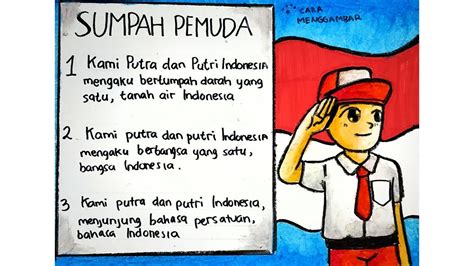 SUMPAH PEMUDA
CARA
MENGGAMBAR
1 Kami Putra dan Putri Indonesia
mengaku bertumpah darah yang
satu, tanah air Indonesia
2 Kami putra dan putri Indonesia
mengaku berbangsa yang satu,
bangsa Indonesia.
3 Kami putra dan putri Indonesia,
menjunjung bahasa persatuan,
bahasa Indonesia